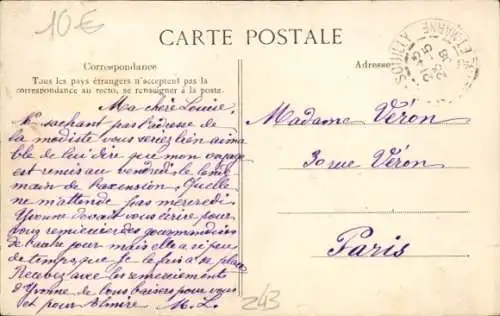 10€
CARTE POSTALE
Correspondance
Tous les pays étrangers n'acceptent pas la
correspondance au recto, se renseigner à la poste.
Adresse
Ma chère Louise,
Ne sachant pas l'adresse de
la modiste vous seriez bien aima
ble de lui dire que mon voyage
est remis au vendredi le lende
main de l'ascension. Qu'elle
ne m'attende pas mercredi.
Yvonne devait vous écrire pour
vous remercier des gourmandises
de l'autre jour mais elle a si peu
de temps que je le fais à sa place
Recevez avec les remerciements
d'Yvonne de bons baisers pour vous
et pour Almire M. L.
Madame Véron
30 rue Véron
Paris
243